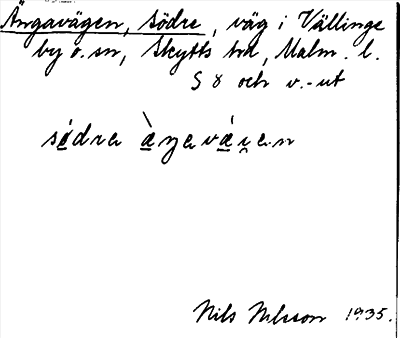 Ängavägen, södre, väg i Vällinge
by o. sn, Skytts hd, Malm. l.
S 8 och v.-ut
södra
Nils Nilsson 1935.